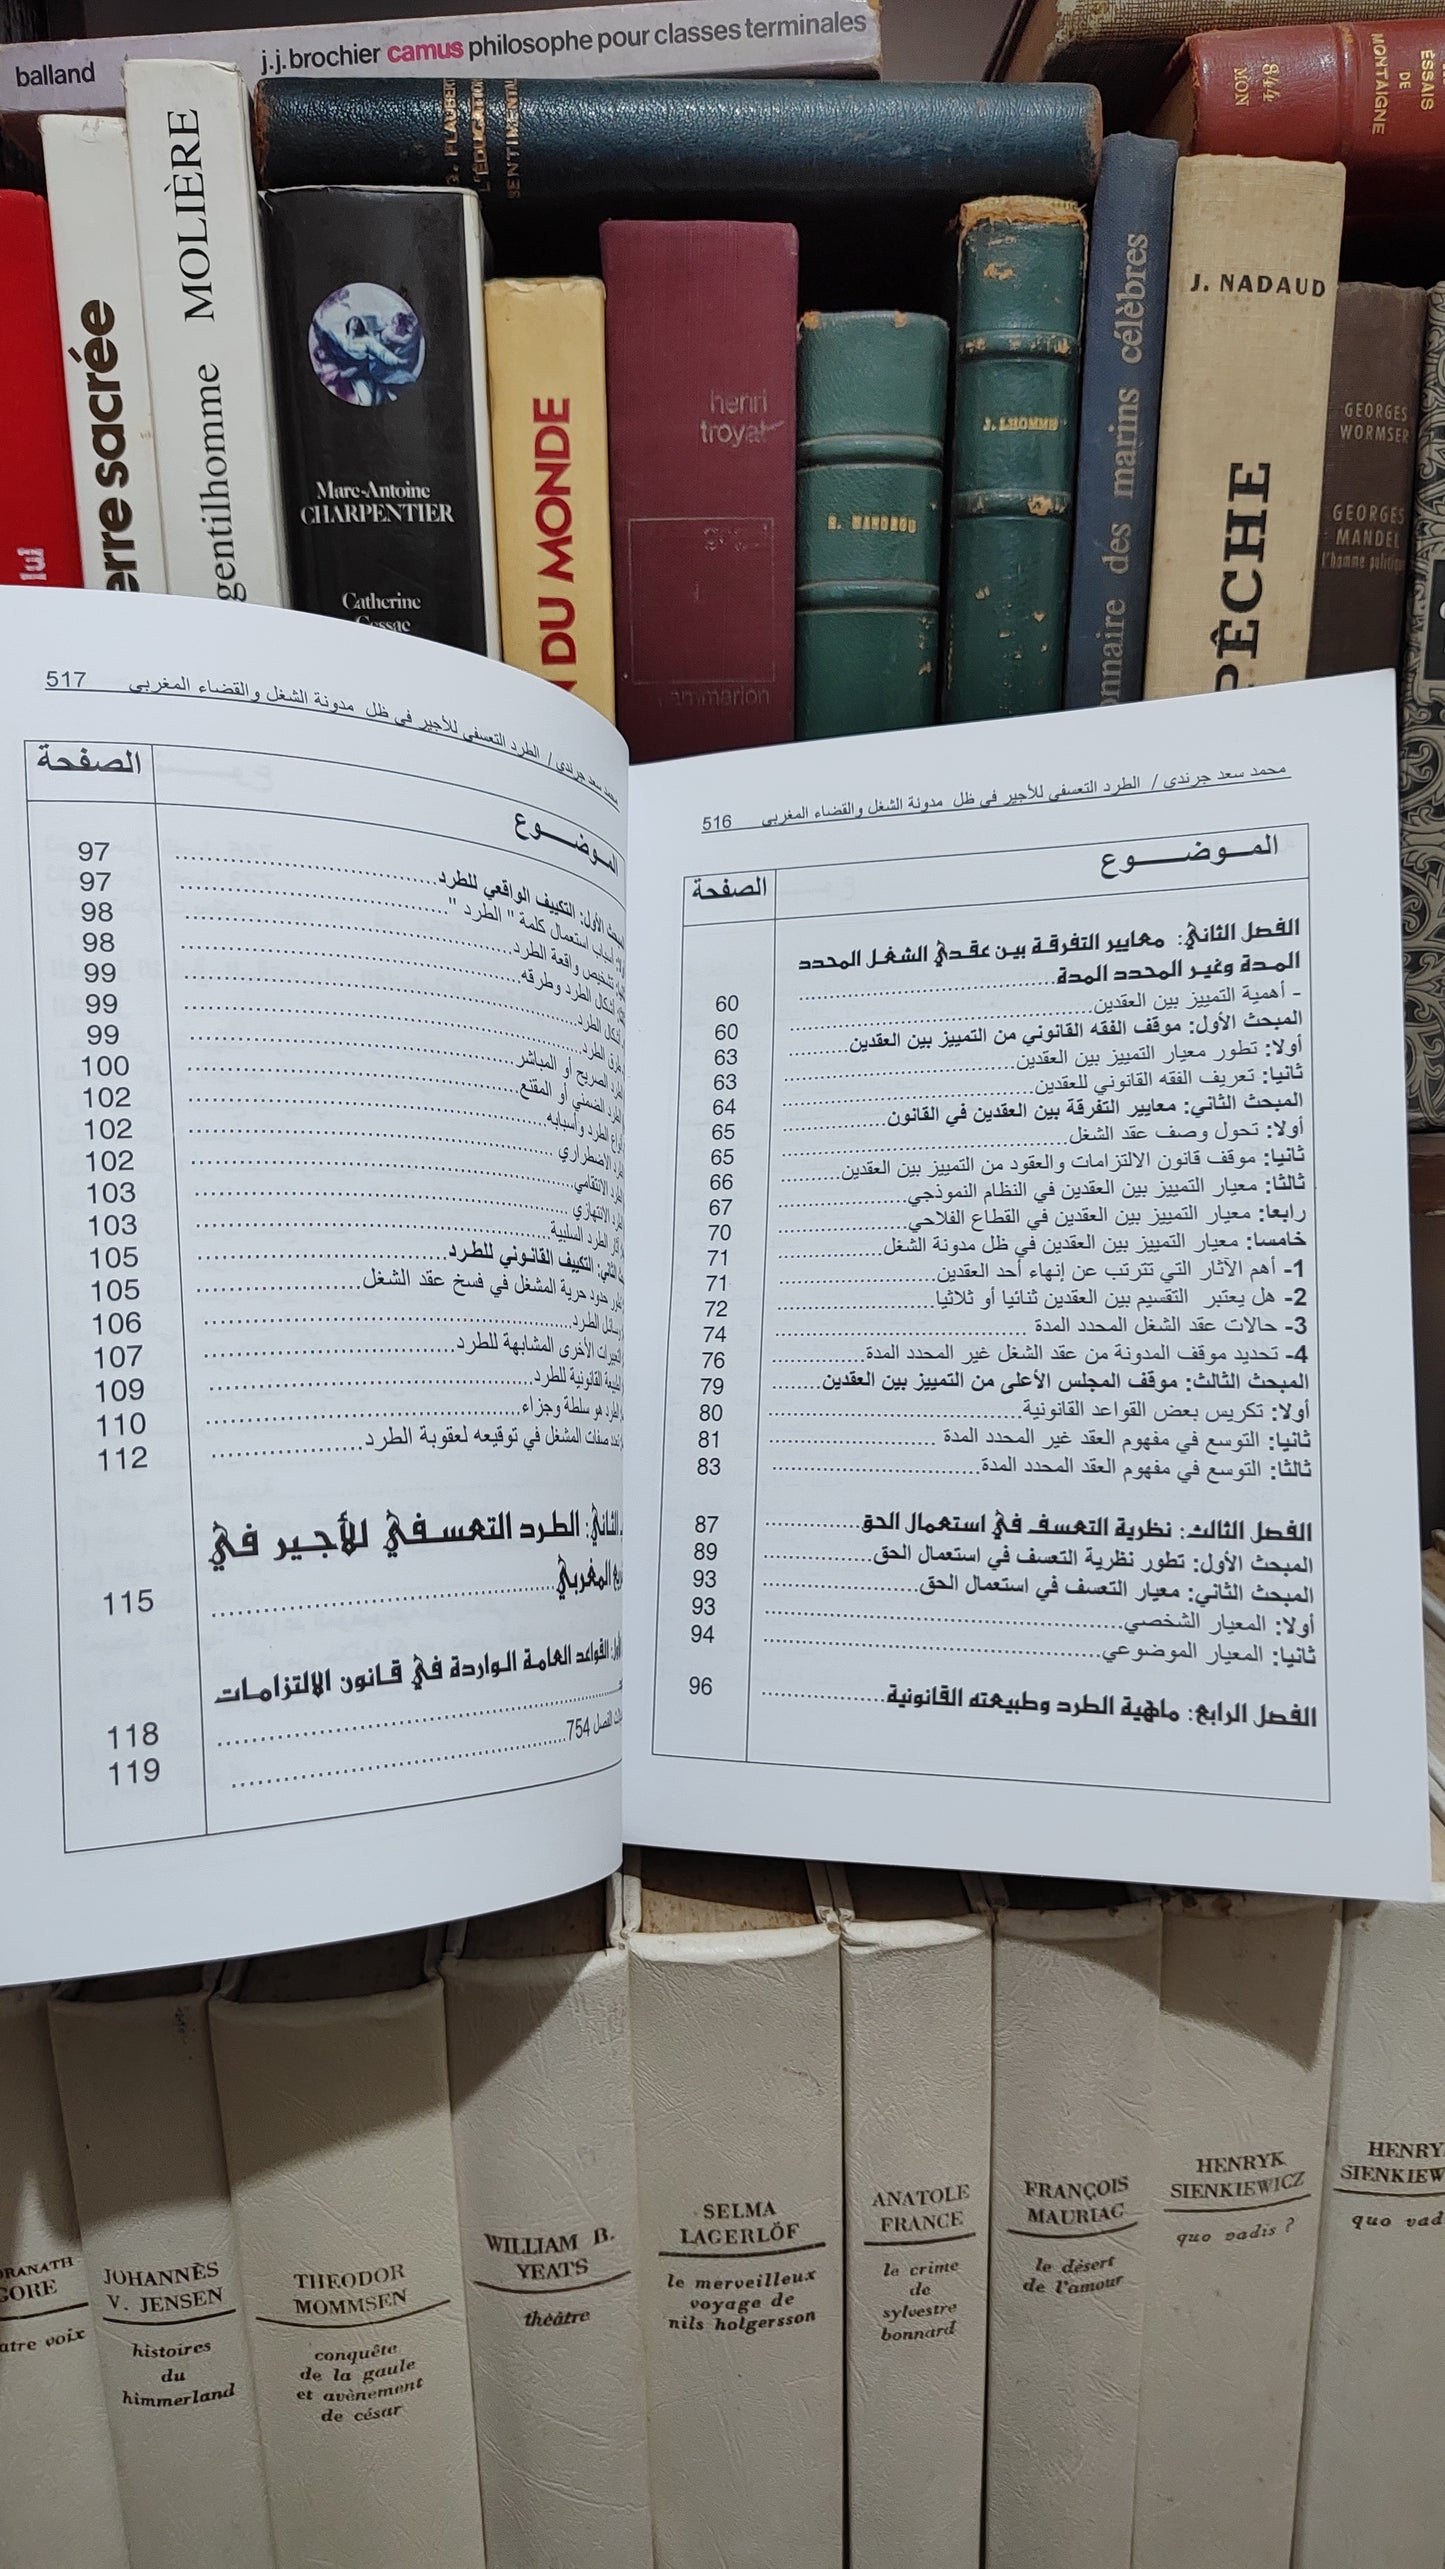 balland
j.j. brochier camus philosophe pour classes terminales
G. FLAUBERT
L'ÉDUCATION
SENTIMENTALE
844
MON
ESSAIS
DE
MONTAIGNE
lui
erre sacrée
MOLIÈRE
gentilhomme
Marc-Antoine
CHARPENTIER
Catherine
Cessac
DU MONDE
henri
troyat
flammarion
R. MANDROU
J. LHOMME
onnaire des marins célèbres
J. NADAUD
PÊCHE
GEORGES
WORMSER
GEORGES
MANDEL
l'homme politique
محمد سعد جرندي / الطرد التعسفي للأجير في ظل مدونة الشغل والقضاء المغربي 516
الموضــــوع الصفحة
الفصل الثاني: معايير التفرقة بين عقدي الشغل المحدد
المدة وغير المحدد المدة 60
- أهمية التمييز بين العقدين 60
المبحث الأول: موقف الفقه القانوني من التمييز بين العقدين 63
أولا: تطور معيار التمييز بين العقدين 63
ثانيا: تعريف الفقه القانوني للعقدين 64
المبحث الثاني: معايير التفرقة بين العقدين في القانون 65
أولا: تحول وصف عقد الشغل 65
ثانيا: موقف قانون الالتزامات والعقود من التمييز بين العقدين 66
ثالثا: معيار التمييز بين العقدين في النظام النموذجي 67
رابعا: معيار التمييز بين العقدين في القطاع الفلاحي 70
خامسا: معيار التمييز بين العقدين في ظل مدونة الشغل 71
1- أهم الآثار التي تترتب عن إنهاء أحد العقدين 71
2- هل يعتبر التقسيم بين العقدين ثنائيا أو ثلاثيا 72
3- حالات عقد الشغل المحدد المدة 74
4- تحديد موقف المدونة من عقد الشغل غير المحدد المدة 76
المبحث الثالث: موقف المجلس الأعلى من التمييز بين العقدين 79
أولا: تكريس بعض القواعد القانونية 80
ثانيا: التوسع في مفهوم العقد غير المحدد المدة 81
ثالثا: التوسع في مفهوم العقد المحدد المدة 83
الفصل الثالث: نظرية التعسف في استعمال الحق 87
المبحث الأول: تطور نظرية التعسف في استعمال الحق 89
المبحث الثاني: معيار التعسف في استعمال الحق 93
أولا: المعيار الشخصي 93
ثانيا: المعيار الموضوعي 94
الفصل الرابع: ماهية الطرد وطبيعته القانونية 96
محمد سعد جرندي / الطرد التعسفي للأجير في ظل مدونة الشغل والقضاء المغربي 517
الموضــــوع الصفحة
المبحث الأول: التكييف الواقعي للطرد 97
أسباب استعمال كلمة " الطرد " 97
تشخيص واقعة الطرد 98
أشكال الطرد وطرقه 98
أشكال الطرد 99
طرق الطرد 99
الطرد الصريح أو المباشر 99
الطرد الضمني أو المقنع 100
أنواع الطرد وأسبابه 102
الطرد الاضطراري 102
الطرد الانتقامي 102
الطرد الانتهازي 103
آثار الطرد السلبية 103
الثاني: التكييف القانوني للطرد 105
حدود حرية المشغل في فسخ عقد الشغل 105
وسائل الطرد 106
التعبيرات الأخرى المشابهة للطرد 107
الطبيعة القانونية للطرد 109
الطرد هو سلطة وجزاء 110
تعدد صفات المشغل في توقيعه لعقوبة الطرد 112
الثاني: الطرد التعسفي للأجير في
المغربي 115
القواعد العامة الواردة في قانون الالتزامات
118
الفصل 754 119
GORE
atre voix
JOHANNÈS
V. JENSEN
histoires
du
himmerland
THEODOR
MOMMSEN
conquête
de la gaule
et avènement
de césar
WILLIAM B.
YEATS
théâtre
SELMA
LAGERLÖF
le merveilleux
voyage de
nils holgersson
ANATOLE
FRANCE
le crime
de
sylvestre
bonnard
FRANÇOIS
MAURIAC
le désert
de l'amour
HENRYK
SIENKIEWICZ
quo vadis ?
HENRY
SIENKIEW
quo vad